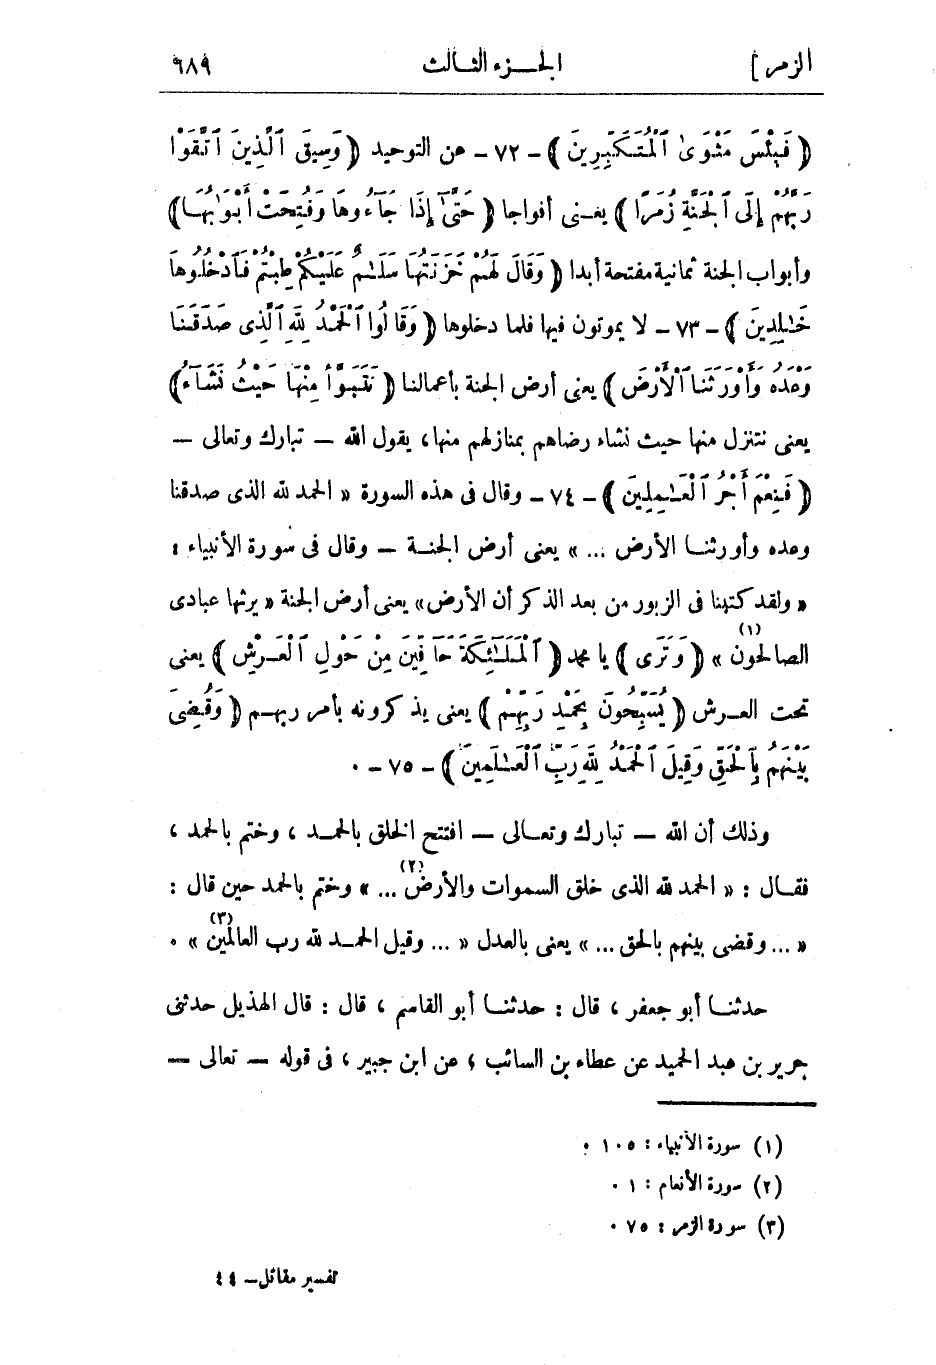 الزمر ] الجـــزء الثـالث ٦٨٩
﴿ فَبِئْسَ مَثْوَى ٱلْمُتَكَبِّرِينَ ﴾ - ٧٢ - عن التوحيد ﴿ وَسِيقَ ٱلَّذِينَ ٱتَّقَوْا
رَبَّهُمْ إِلَى ٱلْجَنَّةِ زُمَرًا ﴾ يعنى أفواجا ﴿ حَتَّىٰٓ إِذَا جَآءُوهَا وَفُتِحَتْ أَبْوَٰبُهَا ﴾
وأبواب الجنة ثمانية مفتحة أبدا ﴿ وَقَالَ لَهُمْ خَزَنَتُهَا سَلَـٰمٌ عَلَيْكُمْ طِبْتُمْ فَٱدْخُلُوهَا
خَـٰلِدِينَ ﴾ - ٧٣ - لا يموتون فيها فلما دخلوها ﴿ وَقَالُوا ٱلْحَمْدُ لِلَّهِ ٱلَّذِى صَدَقَنَا
وَعْدَهُ وَأَوْرَثَنَا ٱلْأَرْضَ ﴾ يعنى أرض الجنة بأعمالنا ﴿ نَتَبَوَّأُ مِنْهَا حَيْثُ نَشَآءُ ﴾
يعنى نتنزل منها حيث نشاء رضاهم بمنازلهم منها، يقول الله — تبارك وتعالى —
﴿ فَنِعْمَ أَجْرُ ٱلْعَـٰمِلِينَ ﴾ - ٧٤ - وقال فى هذه السورة « الحمد لله الذى صدقنا
وعده وأورثنـا الأرض ... » يعنى أرض الجنـة — وقال فى سورة الأنبياء :
« ولقد كتبنا فى الزبور من بعد الذكر أن الأرض » يعنى أرض الجنة « يرثها عبادى
الصالحون » (١) ﴿ وَتَرَى ﴾ يا محمد ﴿ ٱلْمَلَـٰٓئِكَةَ حَآفِّينَ مِنْ حَوْلِ ٱلْعَـرْشِ ﴾ يعنى
تحت العـرش ﴿ يُسَبِّحُونَ بِحَمْدِ رَبِّهِمْ ﴾ يعنى يذكرونه بأمر ربهـم ﴿ وَقُضِىَ
بَيْنَهُم بِٱلْحَقِّ وَقِيلَ ٱلْحَمْدُ لِلَّهِ رَبِّ ٱلْعَـٰلَمِينَ ﴾ - ٧٥ - .
وذلك أن الله — تبارك وتعـالى — افتتح الخلق بالحمـد ، وختم بالحمد ،
فقـال : « الحمد لله الذى خلق السموات والأرض (٢) ... » وختم بالحمد حين قال :
« ... وقضى بينهم بالحق ... » يعنى بالعدل « ... وقيل الحمـد لله رب العالمين (٣) » .
حدثنـا أبو جعفر ، قال : حدثنـا أبو القاسم ، قال : قال الهذيل حدثنى
جرير بن عبد الحميد عن عطاء بن السائب ، عن ابن جبير ، فى قوله — تعالى —
(١) سورة الأنبياء : ١٠٥ .
(٢) سورة الأنعام : ١ .
(٣) سورة الزمر : ٧٥ .
تفسير مقاتل - ٤٤